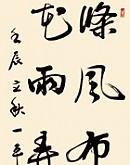 條風布
花雨弄
壬辰立秋一平